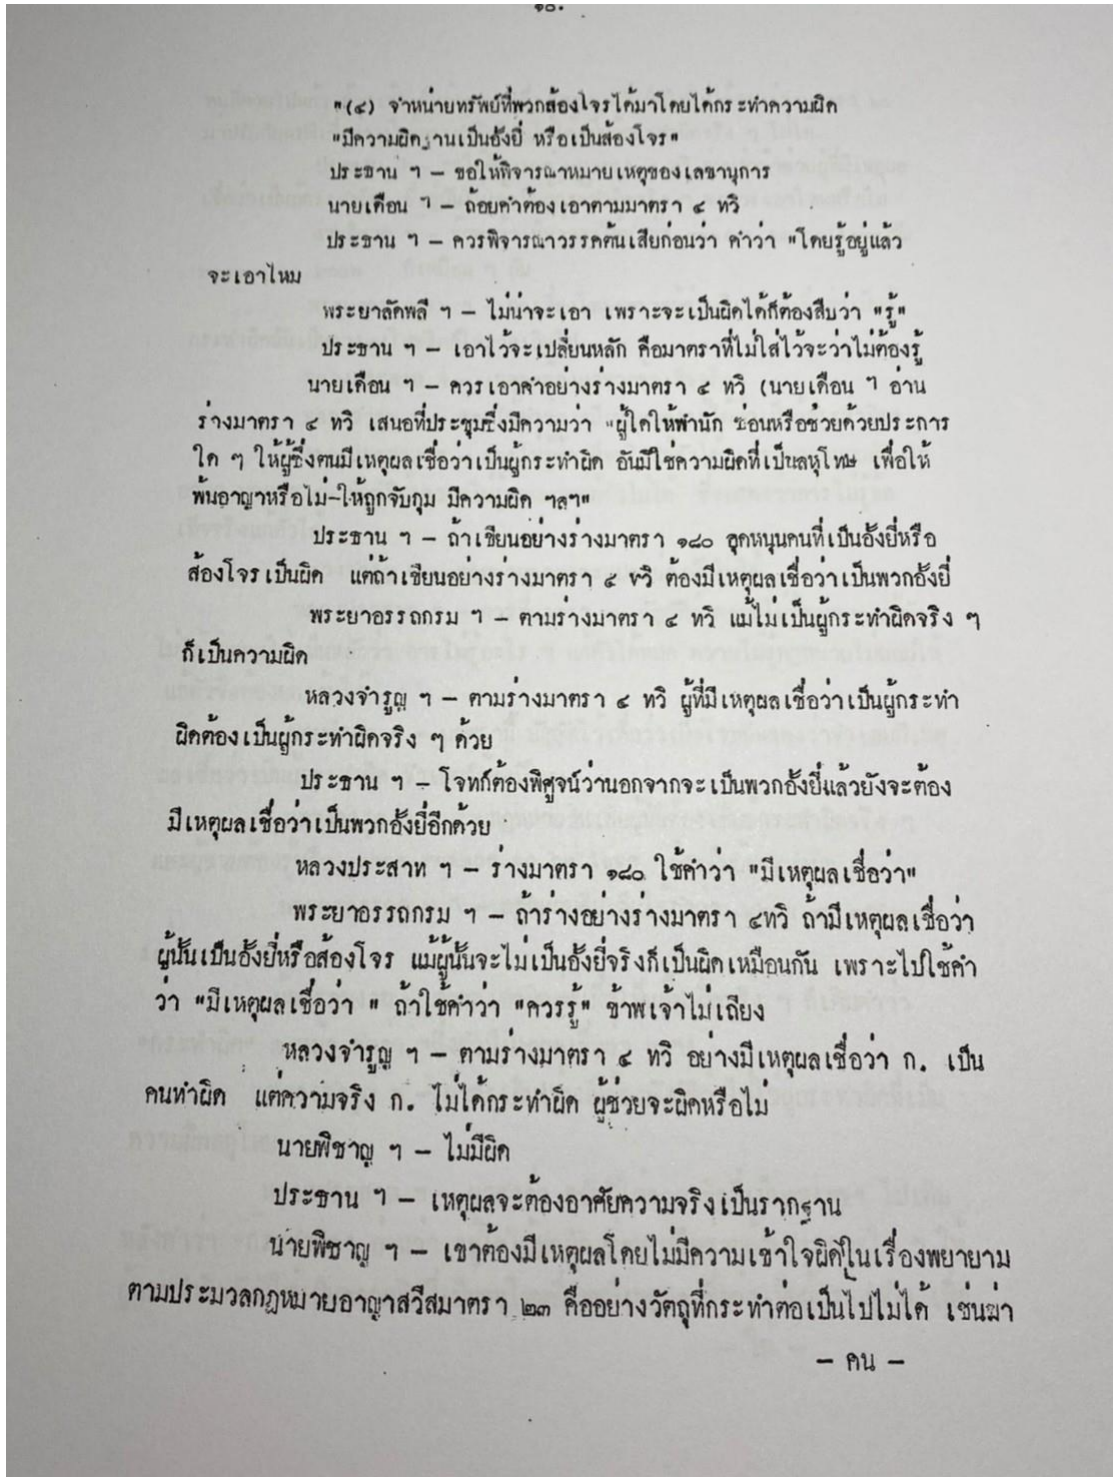 ๑๐.
"(๔) จำหน่ายทรัพย์ที่พวกส้องโจรได้มาโดยได้กระทำความผิด
"มีความผิดฐานเป็นอั้งยี่ หรือเป็นส้องโจร"
ประธาน ฯ – ขอให้พิจารณาหมายเหตุของเลขานุการ
นายเดือน ฯ – ถ้อยคำต้องเอาตามมาตรา ๔ ทวิ
ประธาน ฯ – ควรพิจารณาวรรคต้นเสียก่อนว่า คำว่า "โดยรู้อยู่แล้ว
จะเอาไหม
พระยาลัดพลี ฯ – ไม่น่าจะเอา เพราะจะเป็นผิดได้ก็ต้องสืบว่า "รู้"
ประธาน ฯ – เอาไว้จะเปลี่ยนหลัก คือมาตราที่ไม่ใส่ไว้จะว่าไม่ต้องรู้
นายเดือน ฯ – ควรเอาคำอย่างร่างมาตรา ๔ ทวิ (นายเดือน ฯ อ่าน
ร่างมาตรา ๔ ทวิ เสนอที่ประชุมซึ่งมีความว่า "ผู้ใดให้พำนัก ซ่อนหรือช่วยด้วยประการ
ใด ๆ ให้ผู้ซึ่งตนมีเหตุผลเชื่อว่าเป็นผู้กระทำผิด อันมิใช่ความผิดที่เป็นลหุโทษ เพื่อให้
พ้นอาญาหรือไม่ให้ถูกจับกุม มีความผิด ฯลฯ"
ประธาน ฯ – ถ้าเขียนอย่างร่างมาตรา ๑๘๐ อุดหนุนคนที่เป็นอั้งยี่หรือ
ส้องโจรเป็นผิด แต่ถ้าเขียนอย่างร่างมาตรา ๔ ทวิ ต้องมีเหตุผลเชื่อว่าเป็นพวกอั้งยี่
พระยาอรรถกรม ฯ – ตามร่างมาตรา ๔ ทวิ แม้ไม่เป็นผู้กระทำผิดจริง ๆ
ก็เป็นความผิด
หลวงจำรูญ ฯ – ตามร่างมาตรา ๔ ทวิ ผู้ที่มีเหตุผลเชื่อว่าเป็นผู้กระทำ
ผิดต้องเป็นผู้กระทำผิดจริง ๆ ด้วย
ประธาน ฯ – โจทก์ต้องพิศูจน์ว่านอกจากจะเป็นพวกอั้งยี่แล้วยังจะต้อง
มีเหตุผลเชื่อว่าเป็นพวกอั้งยี่อีกด้วย
หลวงประสาท ฯ – ร่างมาตรา ๑๘๐ ใช้คำว่า "มีเหตุผลเชื่อว่า"
พระยาอรรถกรม ฯ – ถ้าร่างอย่างร่างมาตรา ๔ทวิ ถ้ามีเหตุผลเชื่อว่า
ผู้นั้นเป็นอั้งยี่หรือส้องโจร แม้ผู้นั้นจะไม่เป็นอั้งยี่จริงก็เป็นผิดเหมือนกัน เพราะไปใช้คำ
ว่า "มีเหตุผลเชื่อว่า " ถ้าใช้คำว่า "ควรรู้" ข้าพเจ้าไม่เถียง
หลวงจำรูญ ฯ – ตามร่างมาตรา ๔ ทวิ อย่างมีเหตุผลเชื่อว่า ก. เป็น
คนทำผิด แต่ความจริง ก. ไม่ได้กระทำผิด ผู้ช่วยจะผิดหรือไม่
นายพิชาญ ฯ – ไม่มีผิด
ประธาน ฯ – เหตุผลจะต้องอาศัยความจริงเป็นรากฐาน
นายพิชาญ ฯ – เขาต้องมีเหตุผลโดยไม่มีความเข้าใจผิดในเรื่องพยายาม
ตามประมวลกฎหมายอาญาสวีสมาตรา ๒๓ คืออย่างวัตถุที่กระทำต่อเป็นไปไม่ได้ เช่นฆ่า
– คน –